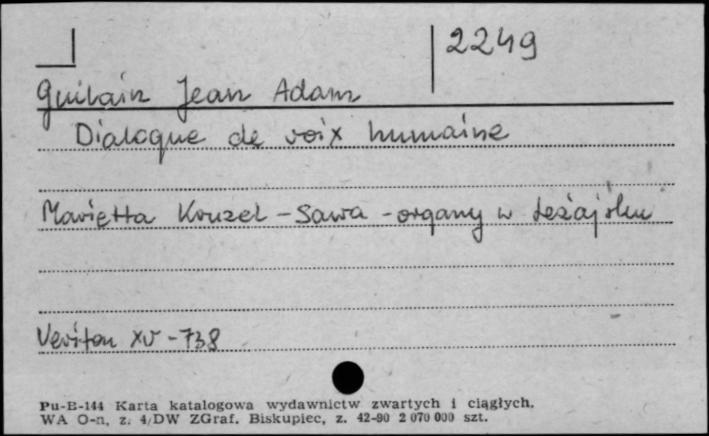 2249
Guilain Jean Adam
Dialogue de voix humaine
Marietta Kruzel-Sawa - organy w Leżajsku
Veriton XV-738
Pu-B-144 Karta katalogowa wydawnictw zwartych i ciągłych.
WA O-n, z. 4/DW ZGraf. Biskupiec, z. 42-80 2 070 000 szt.